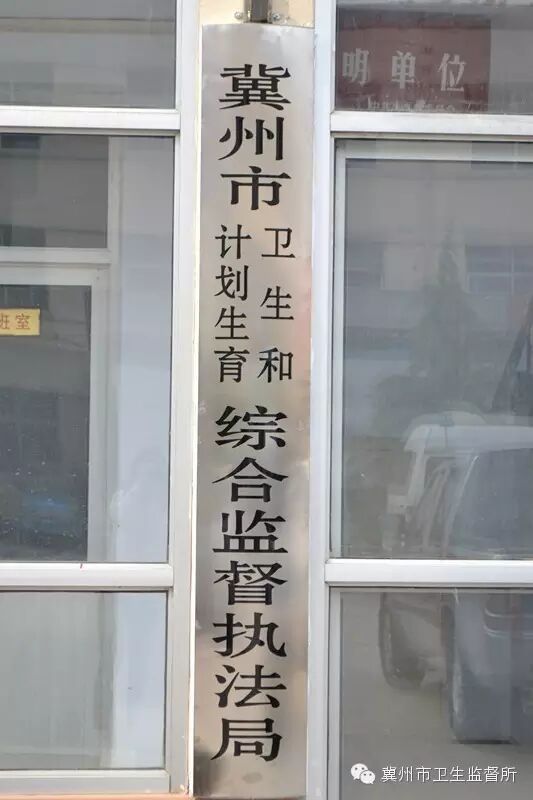 冀州市
卫生和
计划生育
综合监督执法局
明单位
班室
冀州市卫生监督所